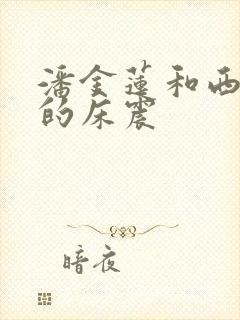 潘金莲和西
的床震
暗夜